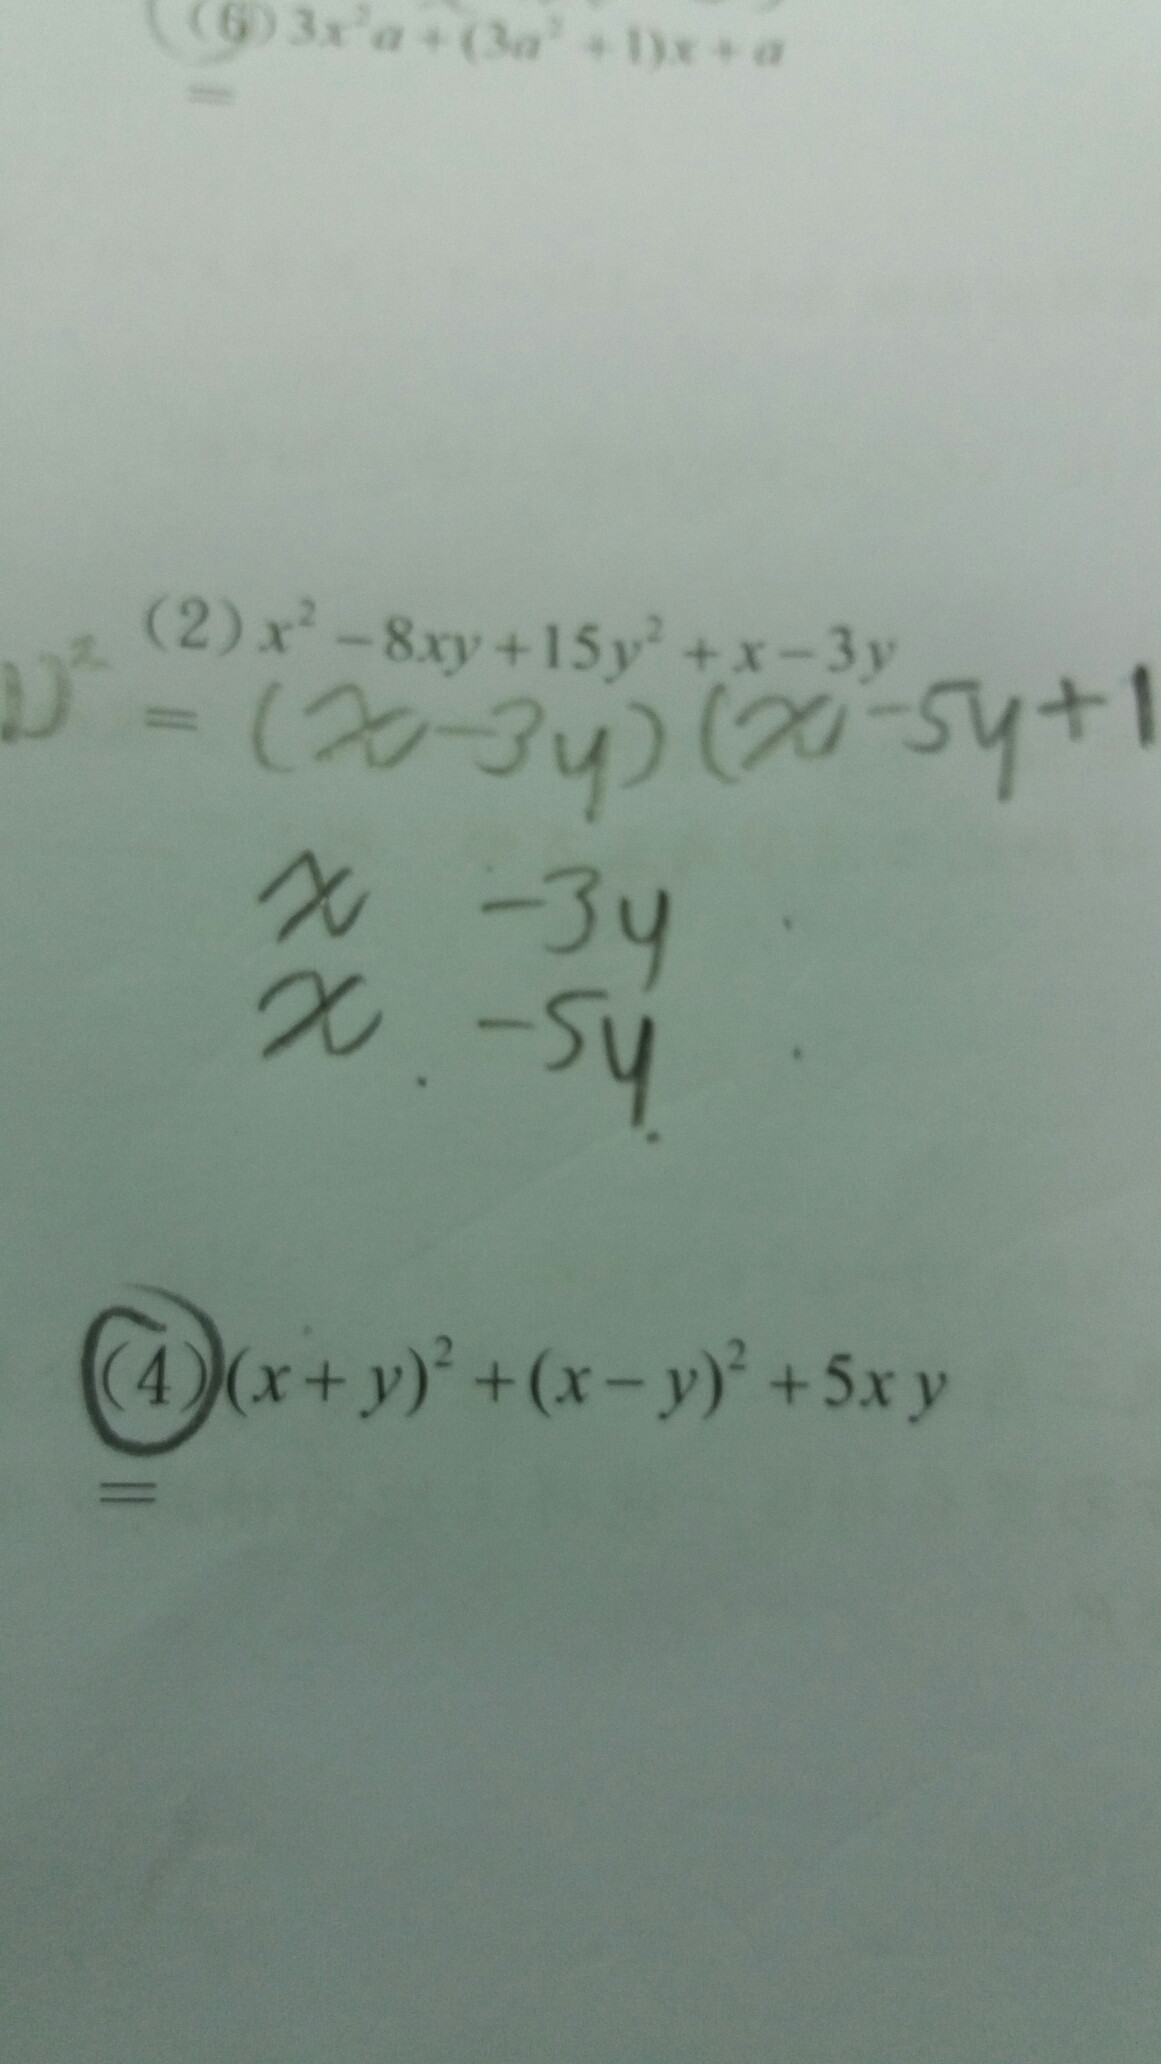 (6) 3x²a + (3a² + 1)x + a
=
(2) x² − 8xy + 15y² + x − 3y
= (x − 3y)(x − 5y + 1
x −3y
x −5y
(4) (x + y)² + (x − y)² + 5xy
=